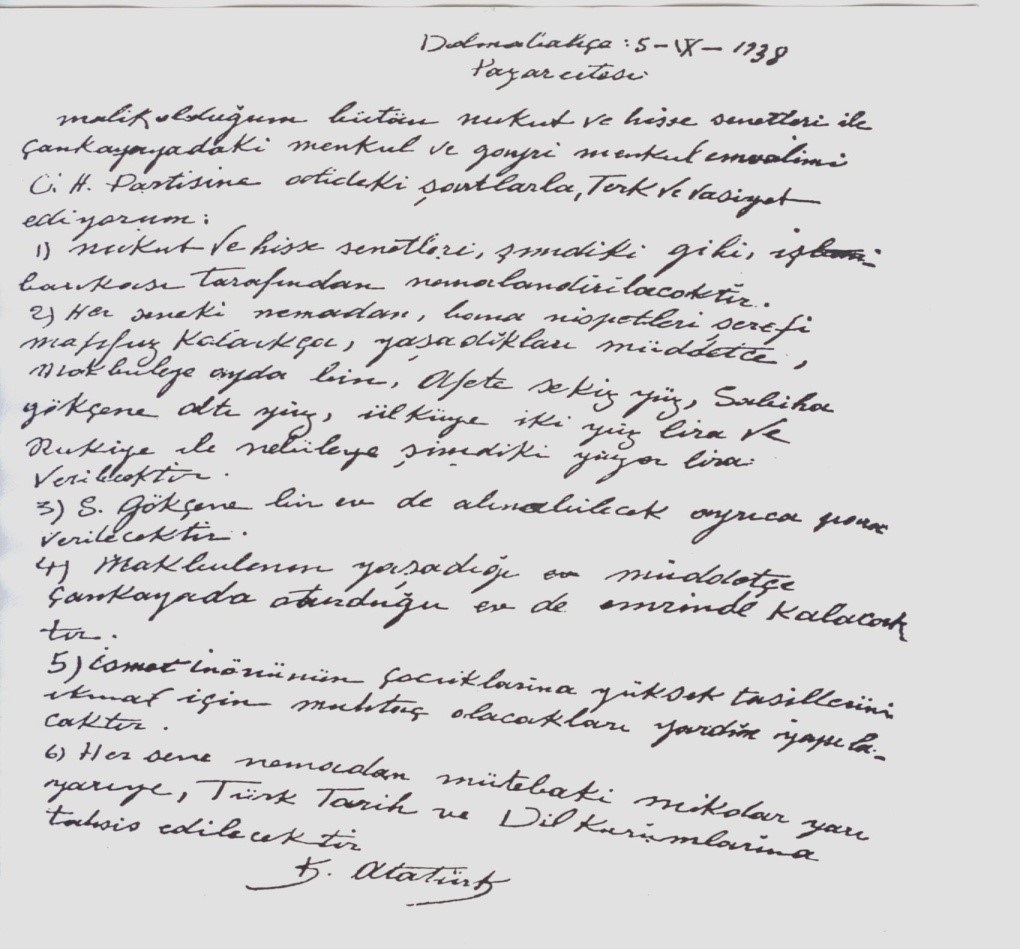 Dolmabahçe: 5-IX-1938
Pazarertesi
malik olduğum bütün nukut ve hisse senetleri ile
Çankayayadaki menkul ve gayri menkul emvalimi
C. H. Partisine atideki şartlarla, Terk ve vasiyet
ediyorum:
1) nukut ve hisse senetleri, şimdiki gibi, iş
bankası tarafından nemalandırılacaktır.
2) Her seneki nemadan, bana nispetleri şerefi
mahfuz Kaldıkça, yaşadıkları müddetce,
Makbuleye ayda bin, Afete sekiz yüz, Sabiha
gökçene altı yüz, ülküye iki yüz lira ve
Rukiye ile nebileye şimdiki yüzer lira
verilecektir.
3) S. Gökçene bir ev de alınabilecek ayrıca para
verilecektir.
4) Makbulenin yaşadığı ev müddetçe
Çankayada oturduğu ev de emrinde Kalacak
tır.
5) ismet inönünün çocuklarına yüksek tasillerini
ikmal için muhtaç olacakları yardım yapıla-
caktır.
6) Her sene nemadan mütebaki miktar yarı
yarıye, Türk Tarih ve Dil Kurumlarına
tahsis edilecektir
K. Atatürk